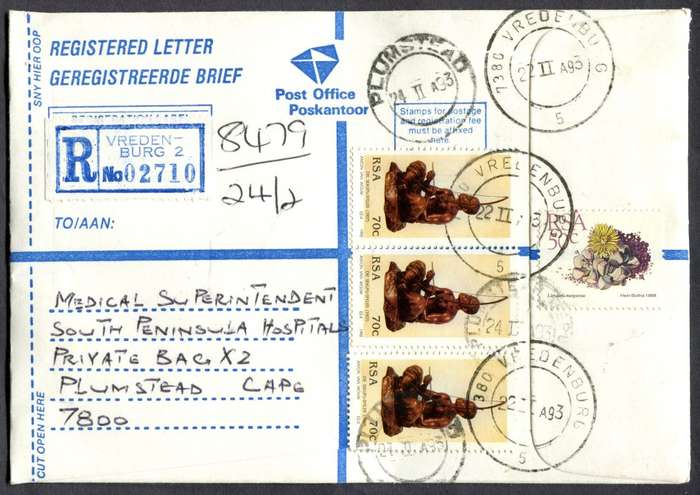 SNY HIER OOP
REGISTERED LETTER
GEREGISTREERDE BRIEF
Post Office
Poskantoor
PLUMSTEAD
24 II A93
7380 VREDENBURG
22 II A93
5
Stamps for postage
and registration fee
must be affixed
here.
REGISTRATION LABEL
R
VREDEN-
BURG 2
No 02710
8479
24/2
TO/AAN:
RSA
70c
VREDENBURG
22 II 93
5
RSA
50c
Hein Botha 1988
RSA
70c
24 II A93
MEDICAL SUPERINTENDENT
SOUTH PENINSULA HOSPITALS
PRIVATE BAG X2
PLUMSTEAD CAPE
7800
RSA
70c
7380 VREDENBURG
22 II A93
5
24 II A93
CUT OPEN HERE